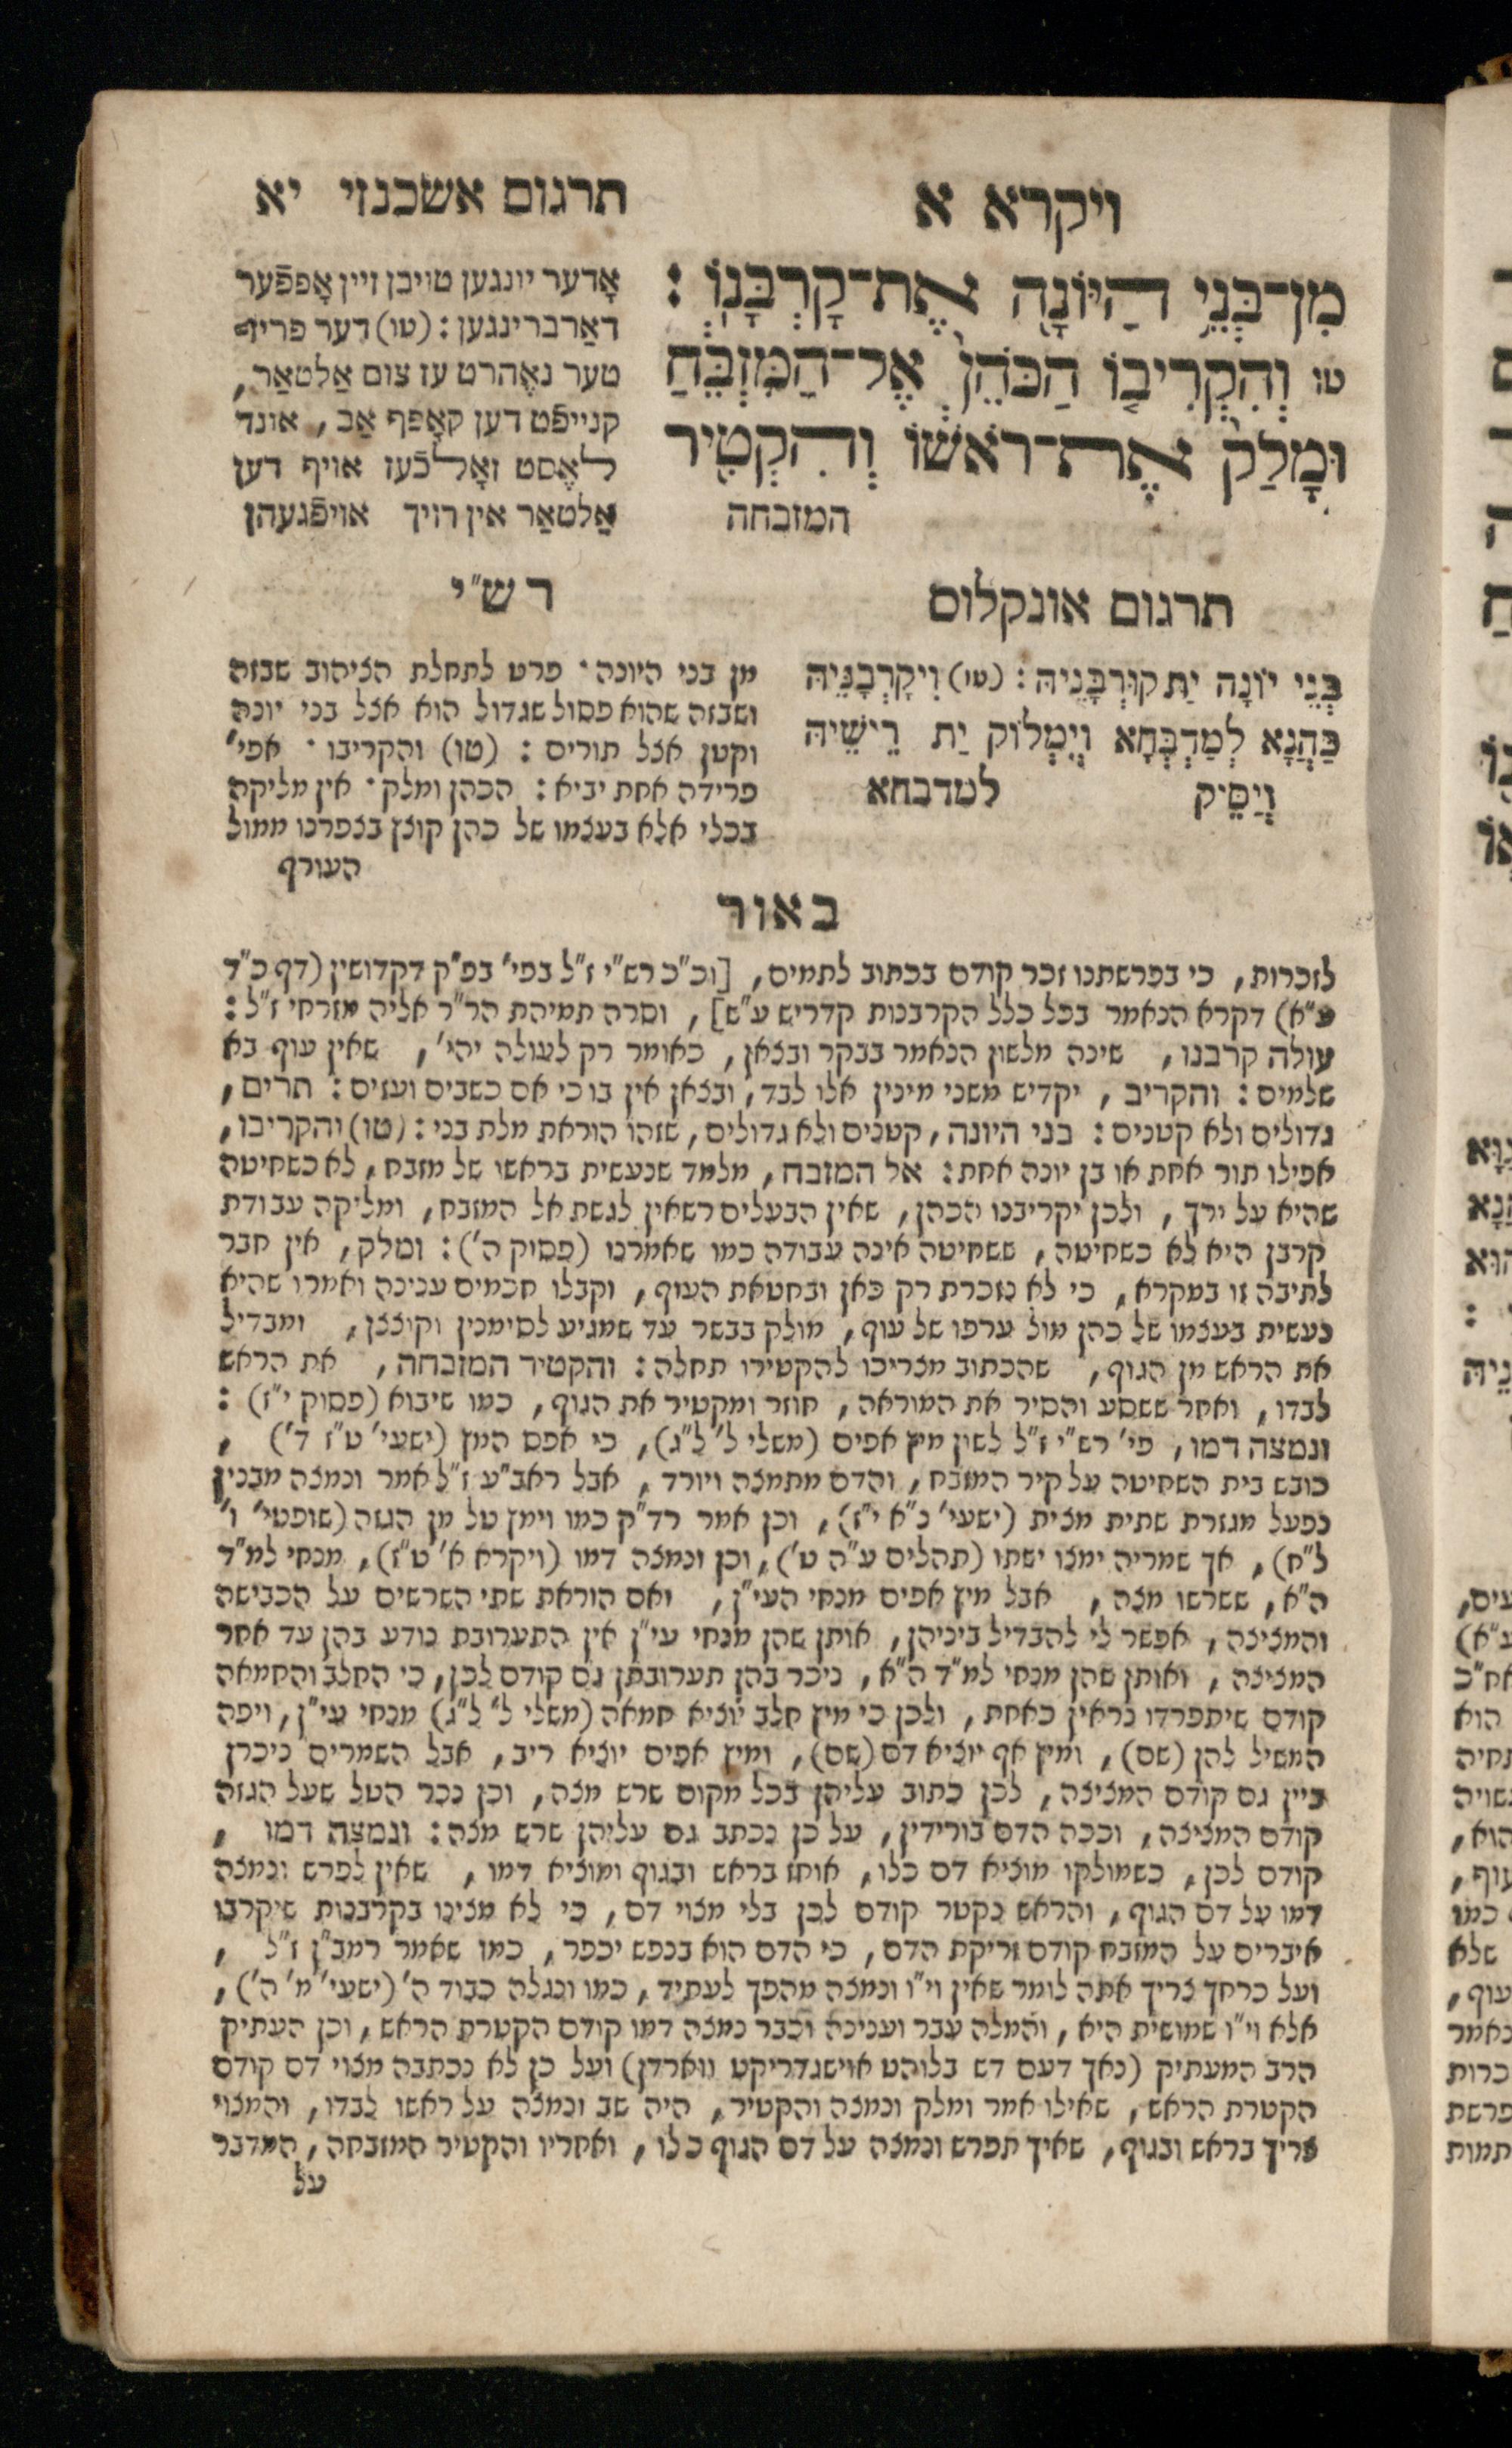 ויקרא א
מִן־בְּנֵי הַיּוֹנָה אֶת־קָרְבָּנוֹ :
טו וְהִקְרִיבוֹ הַכֹּהֵן אֶל־הַמִּזְבֵּחַ
וּמָלַק אֶת־רֹאשׁוֹ וְהִקְטִיר
המזבחה
תרגום אשכנזי יא
אָדער יונגען טויבן זיין אָפפֿער
דאַרברינגען : (טו) דער פריז־
טער נאֶהרט עז צום אַלטאַר,
קנייפֿט דען קאָפף אַב, אונד
לאֶסט זאָלכֿעז אויף דען
אַלטאַר אין רויך אויפֿגעהן
תרגום אונקלוס
בְּנֵי יוֹנָה יַת קוּרְבָּנֵיהּ : (טו) וִיקָרְבָנֵּיהּ
כַּהֲנָא לְמַדְבְּחָא וְיִמְלוֹק יַת רֵישֵׁיהּ
וְיַסֵּיק למדבחא
רש״י
מן בני היונה· פרט לתחלת הציהוב שבזה
ושבזה שהוא פסול שגדול הוא אצל בני יונה
וקטן אצל תורים : (טו) והקריבו· אפי׳
פרידה אחת יביא : הכהן ומלק· אין מליקה
בכלי אלא בעצמו של כהן קוצץ בצפרנו ממול
העורף
באור
לזכרות, כי בפרשתנו זכר קודם בכתוב לתמים, [וכ״כ רש״י ז״ל בפי׳ בפ״ק דקדושין (דף כ״ד
ע״א) דקרא הנאמר בכל כלל הקרבנות קדריש ע״ש], וסרה תמיהת הר״ר אליה מזרחי ז״ל :
עולה קרבנו, שינה מלשון הנאמר בבקר ובצאן, כאומר רק לעולה יהי׳, שאין עוף בא
שלמים : והקריב, יקדיש משני מינין אלו לבד, ובצאן אין בו כי אם כשבים ועזים : תרים,
גדולים ולא קטנים : בני היונה, קטנים ולא גדולים, שזהו הוראת מלת בני : (טו) והקריבו,
אפילו תור אחת או בן יונה אחת : אל המזבח, מלמד שנעשית בראשו של מזבח, לא כשחיטה
שהיא על ירך, ולכן יקריבנו הכהן, שאין הבעלים רשאין לגשת אל המזבח, ומליקה עבודת
קרבן היא לא כשחיטה, ששחיטה אינה עבודה כמו שאמרנו (פסוק ה׳) : ומלק, אין חבר
לתיבה זו במקרא, כי לא נזכרת רק כאן ובחטאת העוף, וקבלו חכמים ענינה ואמרו שהיא
נעשית בעצמו של כהן מול ערפו של עוף, מולק בבשר עד שמגיע לסימנין וקוצצן, ומבדיל
את הראש מן הגוף, שהכתוב מצריכו להקטירו תחלה : והקטיר המזבחה, את הראש
לבדו, ואחר ששסע והסיר את המוראה, חוזר ומקטיר את הגוף, כמו שיבוא (פסוק י״ז) :
ונמצה דמו, פי׳ רש״י ז״ל לשון מיץ אפים (משלי ל׳ ל״ג), כי אפס המץ (ישעי׳ ט״ז ד׳),
כובש בית השחיטה על קיר המזבח, והדם מתמצה ויורד, אבל ראב״ע ז״ל אמר ונמצה מבנין
נפעל מגזרת שתית מצית (ישעי׳ נ״א י״ז), וכן אמר רד״ק כמו וימץ טל מן הגזה (שופטי׳ ו׳
ל״ח), אך שמריה ימצו ישתו (תהלים ע״ה ט׳), וכן ונמצה דמו (ויקרא א׳ ט״ז), מנחי למ״ד
ה״א, ששרשו מצה, אבל מיץ אפים מנחי העי״ן, ואם הוראת שתי השרשים על הכבישה
והמציצה, אפשר לי להבדיל ביניהן, אותן שהן מנחי עי״ן אין התערובת נודע בהן עד אחר
המציצה, ואותן שהן מנחי למ״ד ה״א, ניכר בהן תערובתן גם קודם לכן, כי החלב והחמאה
קודם שיתפרדו נראין כאחת, ולכן כי מיץ חלב יוציא חמאה (משלי ל׳ ל״ג) מנחי עי״ן, ויפה
המשיל להן (שם), ומיץ אף יוציא דם (שם), ומיץ אפים יוציא ריב, אבל השמרים ניכרן
ביין גם קודם המציצה, לכן כתוב עליהן בכל מקום שרש מצה, וכן נכר הטל שעל הגזה
קודם המציצה, וככה הדם בורידין, על כן נכתב גם עליהן שרש מצה : ונמצה דמו,
קודם לכן, כשמולקו מוציא דם כלו, אוחז בראש ובגוף ומוציא דמו, שאין לפרש ונמצה
דמו על דם הגוף, והראש נקטר קודם לכן בלי מצוי דם, כי לא מצינו בקרבנות שיקרבו
איברים על המזבח קודם זריקת הדם, כי הדם הוא בנפש יכפר, כמו שאמר רמב״ן ז״ל,
ועל כרחך צריך אתה לומר שאין וי״ו ונמצה מהפך לעתיד, כמו ונגלה כבוד ה׳ (ישעי׳ מ׳ ה׳),
אלא וי״ו שמושית היא, והמלה עבר וענינה וכבר נמצה דמו קודם הקטרת הראש, וכן העתיק
הרב המעתיק (נאך דעם דש בלוהט אוישגדריקט ווארדן) ועל כן לא נכתבה מצוי דם קודם
הקטרת הראש, שאילו אמר ומלק ונמצה והקטיר, היה שב ונמצה על ראשו לבדו, והמצוי
צריך בראש ובגוף, שאיך תפרש ונמצה על דם הגוף כלו, ואחריו והקטיר המזבחה, המדבר
על